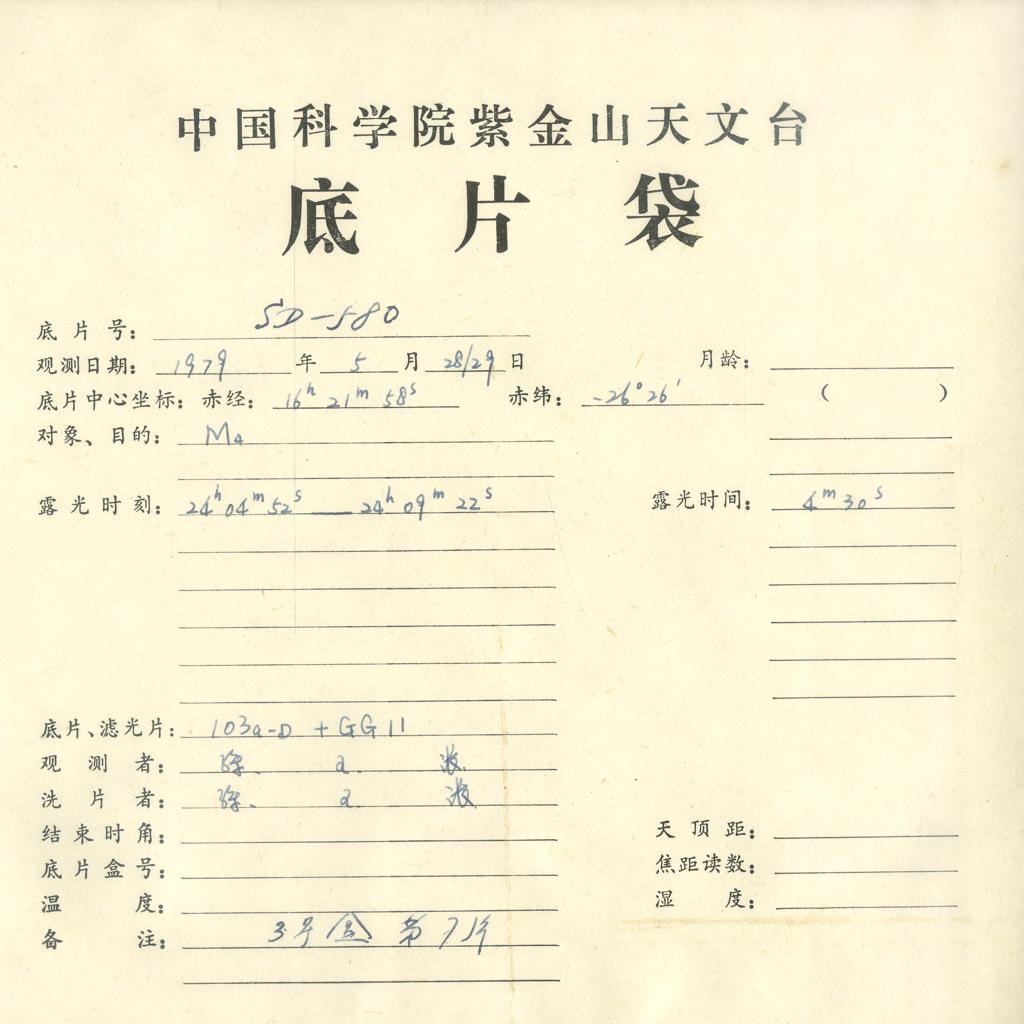 中国科学院紫金山天文台
底片袋
底片号: SD-580
观测日期: 1979年5月28/29日 月龄:
底片中心坐标: 赤经: 16h 21m 58s 赤纬: -26°26′ ( )
对象、目的: M4
露光时刻: 24h04m52s — 24h09m22s 露光时间: 4m30s
底片、滤光片: 103a-D + GG11
观测者:
洗片者:
结束时角: 天顶距:
底片盒号: 焦距读数:
温度: 湿度:
备注: 3号盒 第7片